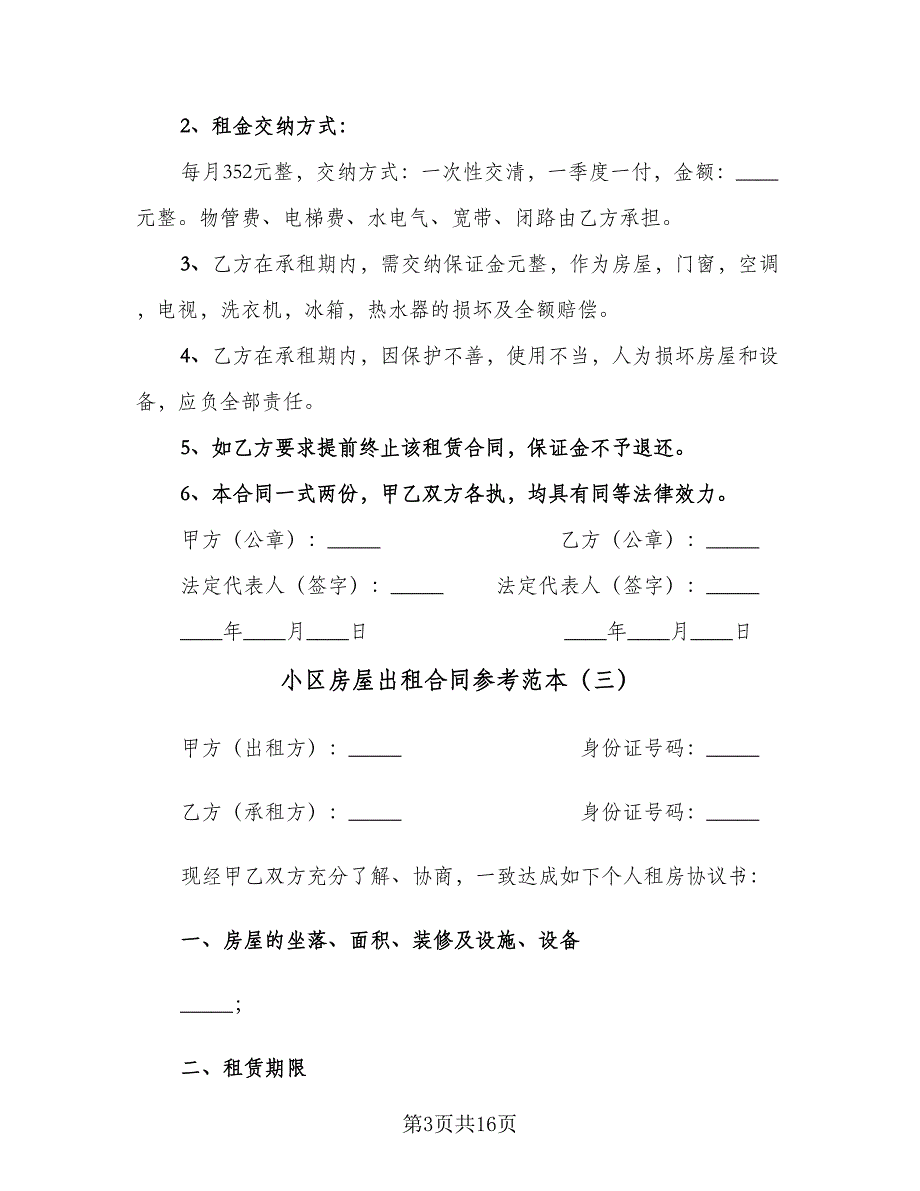 2、租金交纳方式：
每月352元整，交纳方式：一次性交清，一季度一付，金额：____
元整。物管费、电梯费、水电气、宽带、闭路由乙方承担。
3、乙方在承租期内，需交纳保证金元整，作为房屋，门窗，空调
，电视，洗衣机，冰箱，热水器的损坏及全额赔偿。
4、乙方在承租期内，因保护不善，使用不当，人为损坏房屋和设
备，应负全部责任。
5、如乙方要求提前终止该租赁合同，保证金不予退还。
6、本合同一式两份，甲乙双方各执，均具有同等法律效力。
甲方（公章）：_____ 乙方（公章）：_____
法定代表人（签字）：_____ 法定代表人（签字）：_____
____年____月____日 ____年____月____日
小区房屋出租合同参考范本（三）
甲方（出租方）：_____ 身份证号码：_____
乙方（承租方）：_____ 身份证号码：_____
现经甲乙双方充分了解、协商，一致达成如下个人租房协议书：
一、房屋的坐落、面积、装修及设施、设备
_____；
二、租赁期限
第3页共16页